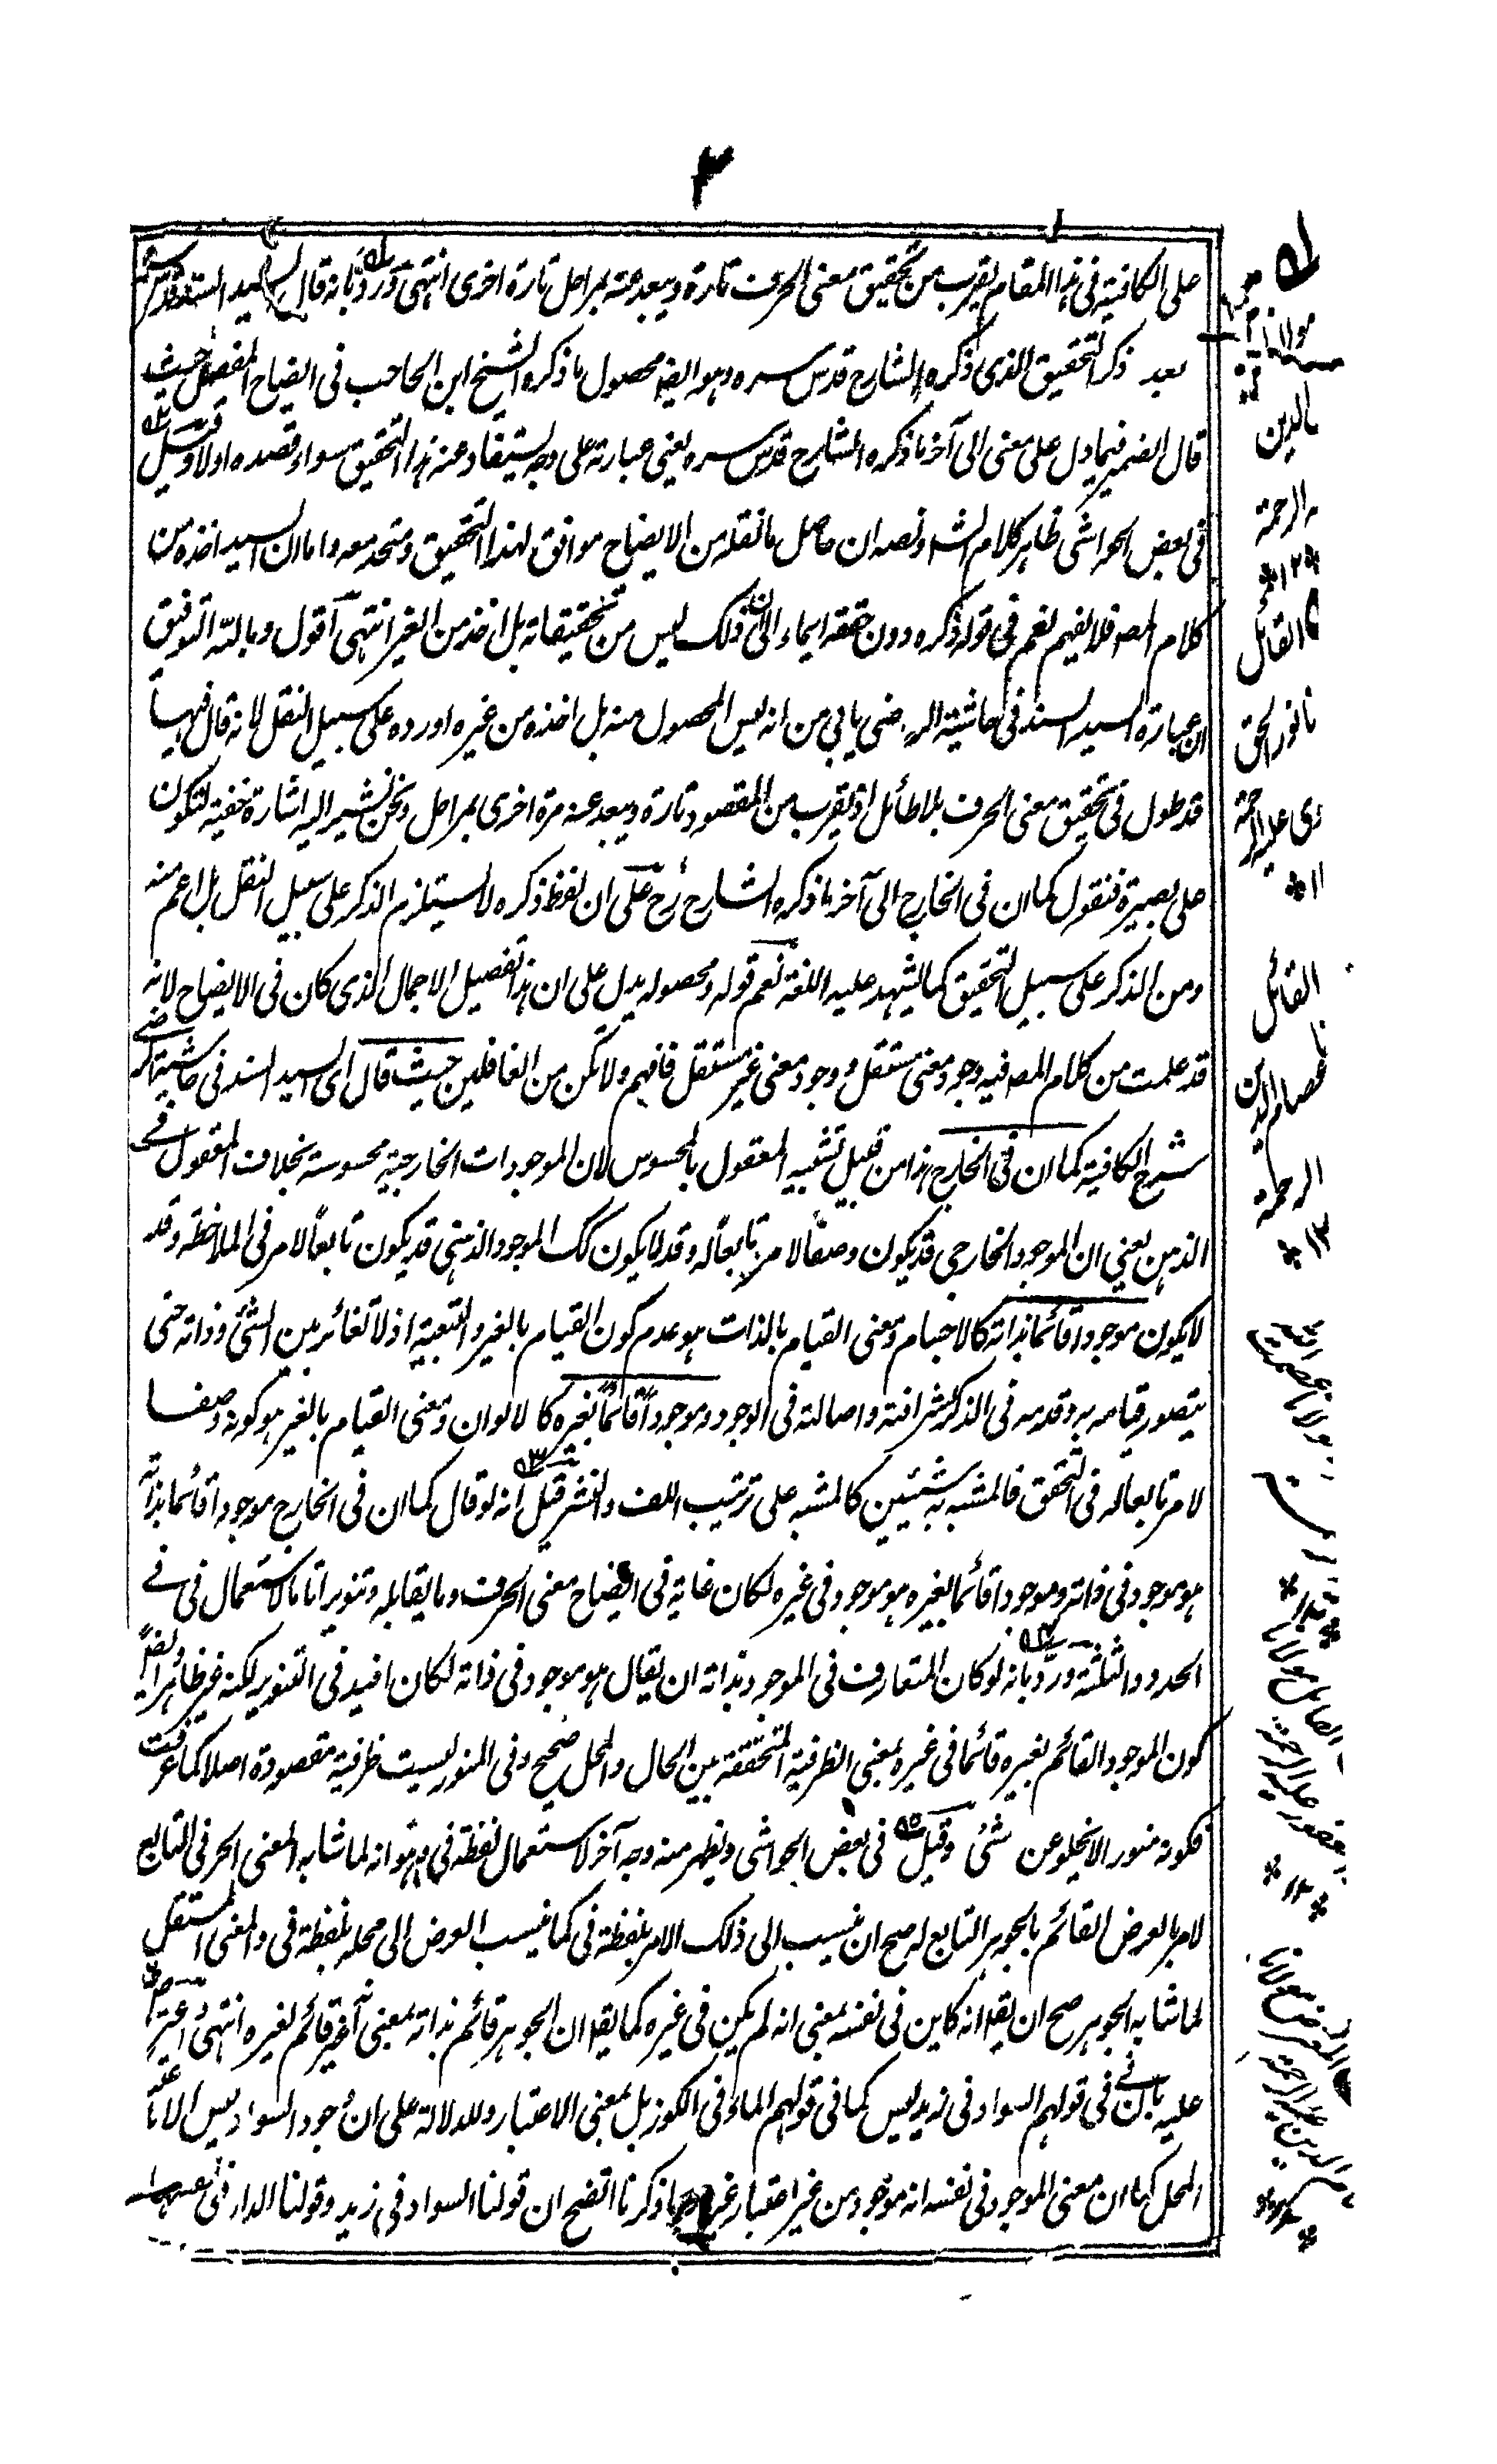 ٣
على الكافية فى هذا المقام يقرب من تحقيق معنى الحرف تارة ويبعد عنه بمراحل تارة اخرى انتهى ورد بانه قال السيد السند قدس سره
بعد ذكر التحقيق الذى ذكره الشارح قدس سره وهو ايضا محصول ما ذكره الشيخ ابن الحاجب فى ايضاح المفصل حيث
قال الضمير فيما دل على معنى الى آخر ما ذكره الشارح قدس سره يعنى عبارته على وجه يستفاد عنه هذا التحقيق سواء قصده اولا وقيل
فى بعض الحواشى ظاهر كلام الشـ ونصه ان حاصل ما نقله من الايضاح موافق لهذا التحقيق ومتحد معه واما ان السيد اخذه من
كلام المصـ فلا يفهم نعم فى قوله ذكره دون حققه ايماء الى ان ذلك ليس من تحقيقاته بل اخذ من الغير انتهى اقول وبالله التوفيق
ان عبارة السيد السند فى حاشية الرضى يابى من انه ليس المحصول منه بل اخذه من غيره اورده على سبيل النقل لانه قال فيها
قد طول فى تحقيق معنى الحرف بلا طائل اذ يقرب من المقصود تارة ويبعد عنه مرة اخرى بمراحل ونحن نشير اليه اشارة خفية لتكون
على بصيرة فنقول كما ان فى الخارج الى آخر ما ذكره الشارح رح على ان لفظ ذكره لا يستلزم الذكر على سبيل النقل بل اعم منه
ومن الذكر على سبيل التحقيق كما يشهد عليه اللغة نعم قوله ومحصوله يدل على ان هذا تفصيل الاجمال الذى كان فى الايضاح لانه
قد علمت من كلام المصـ فيه وجود معنى مستقل ووجود معنى غير مستقل فافهم ولا تكن من الغافلين حيث قال اى السيد السند فى حاشية الرضى
شرح الكافية كما ان فى الخارج هذا من قبيل تشبيه المعقول بالمحسوس لان الموجودات الخارجية محسوسة بخلاف المعقول فى
الذهن يعنى ان الموجود الخارجى قد يكون وصفا لامر تابعا له وقد لا يكون كك الموجود الذهنى قد يكون تابعا لامر فى الملاحظة وقد
لا يكون موجودا قائما بذاته كالاجسام ومعنى القيام بالذات هو عدم كون القيام بالغير والتبعية اذ لا تغائر بين الشئ وذاته حتى
يتصور قيامه به وقدمه فى الذكر لشرافته واصالته فى الوجود وموجودا قائما بغيره كالالوان ومعنى القيام بالغير هو كونه وصفا
لامر تابعا له فى التحقق فالمشبه به شيئين كالمشبه على ترتيب اللف والنشر قيل انه لو قال كما ان فى الخارج موجودا قائما بذاته
هو موجود فى ذاته وموجودا قائما بغيره هو موجود فى غيره لكان غاية فى ايضاح معنى الحرف وما يقابله وتنويرا تاما لاستعمال فى فى
الحدود الثلثة ورد بانه لو كان المتعارف فى الموجود بذاته ان يقال هو موجود فى ذاته لكان افيد فى التنوير لكنه غير ظاهر ايضا
كون الموجود القائم بغيره قائما فى غيره بمعنى الظرفية المتحققة بين الحال والمحل صحيح وفى المنور ليست ظرفية مقصودة اصلا كما عرفت
فكونه منورا لا يخلو عن شئ وقيل فى بعض الحواشى ويظهر منه وجه آخر لاستعمال لفظة فى وهو انه لما شابه المعنى الحرفى التابع
لامر بالعرض القائم بالجوهر التابع له صح ان ينسب الى ذلك الامر بلفظة فى كما ينسب العرض الى محله بلفظة فى والمعنى المستقل
لما شابه الجوهر صح ان يقـ انه كاين فى نفسه بمعنى انه لم يكن فى غيره كما يقـ ان الجوهر قائم بذاته بمعنى انه غير قائم بغيره انتهى واعترض
عليه بان فى فى قولهم السواد فى زيد ليس كما فى قولهم الماء فى الكوز بل بمعنى الاعتبار وللدلالة على ان وجود السواد ليس الا باعتبار
المحل كما ان معنى الموجود فى نفسه انه موجود من غير اعتبار غيره وما ذكرنا اتضح ان قولنا السواد فى زيد وقولنا الدار فى نفسها
مولانا
الدين
الرحمة
١٢
القائل
نور الحق
عليه الرحمة
١٢
القائل
عصام الدين
الرحمة
١٢
مولانا عصمت الله
١٢
مولانا
عليه الرحمة
١٢
عليه الرحمة